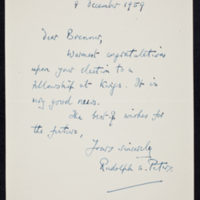 9 December 1959
Dear Brenner,
Warmest congratulations
upon your election to a
Fellowship at Kings. It is
very good news.
The best of wishes for
the future,
Yours sincerely
Rudolph A. Peters